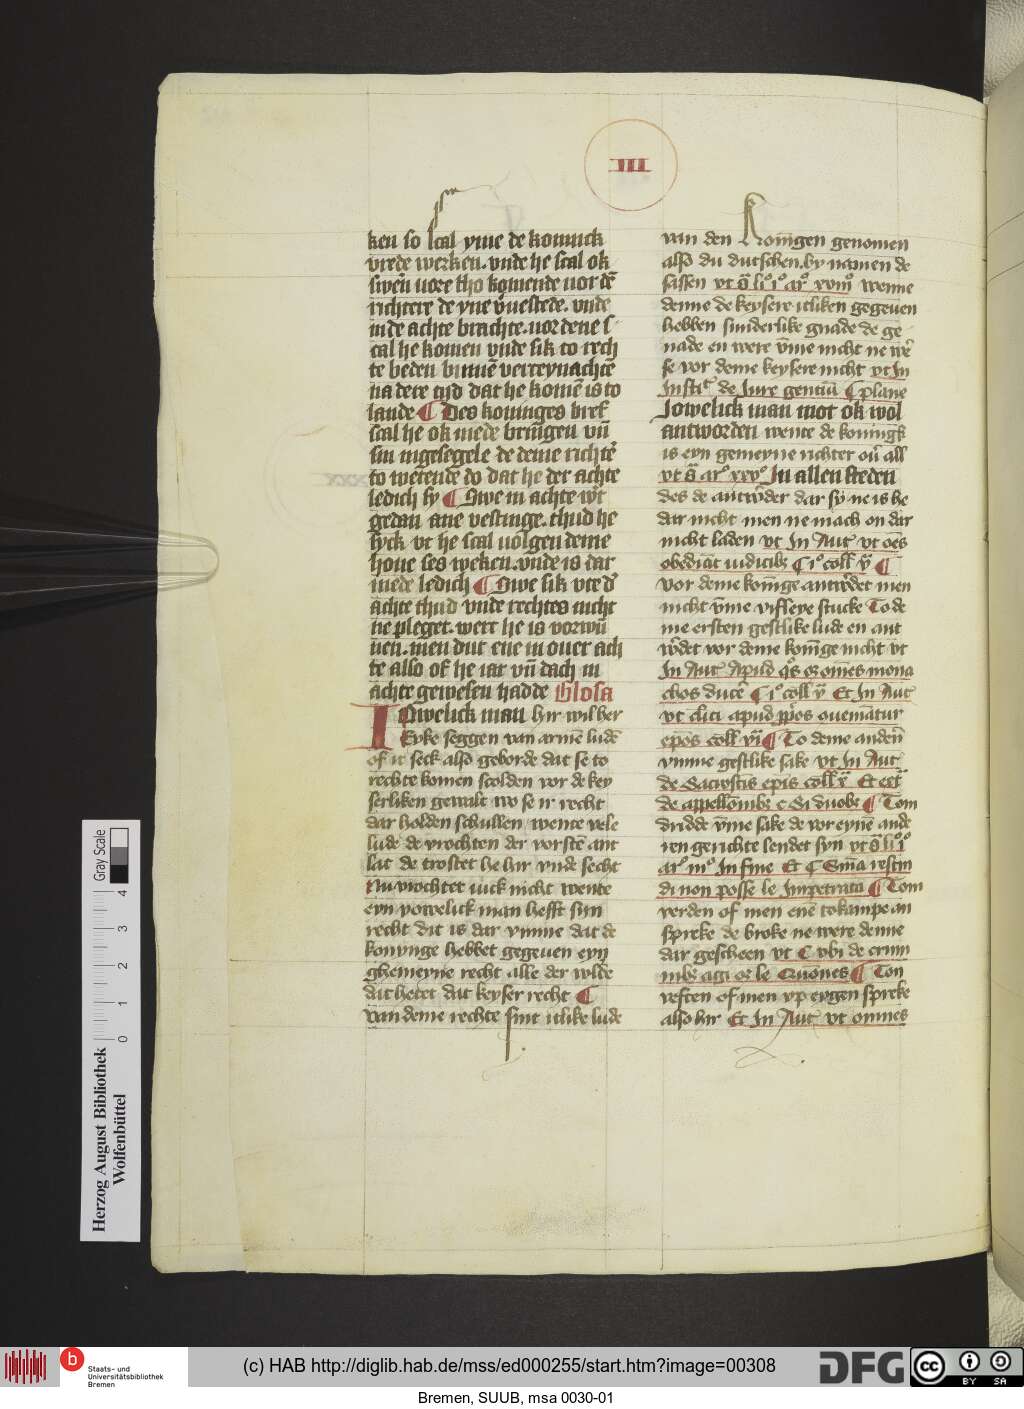 III
ken so scal yme de konnick
vrede werken. vnde he scal ok
sweren vore tho komende vor den
richtere de yne vuestede. vnde
in de achte brachte. vor dene s
cal he komen vnde sik to rech
te beden binnen verteynachten
na dere tyd dat he komen is to
lande ¶ Des koninges bref
scal he ok mede bringen vnde
sin ingesegele de deme richter
to wetende do dat he der achte
ledich sy ¶ Swe in achte wert
gedan ane vestinge. thud he
syck vt he scal volgen deme
houe ses weken. vnde is dar
mede ledich ¶ Swe sik vte der
achte thud vnde rechtes nicht
ne pleget. wert he is vorwun
nen. men dut ene in ouer ach
te also of he iar vnde dach in
achte gewesen hadde Glosa
Iowelick man hir wil her
Eyke seggen van armen luden
of it seck also geborde dat se to
rechte komen scolden vor de key
serliken gewalt wo se ir recht
dar holden schullen wente vele
lude de vrochten der vorsten ant
lat de trostet he hir vnde secht
Nu vrochtet iuck nicht wente
eyn yowelick man hefft syn
recht dit is dar vmme dat de
konynge hebbet gegeuen eyn
ghemeyne recht alle der wlde
dat hetet dat keyser recht ¶
van deme rechte sint itlike lude
van den Koningen genomen
also du dutschen. by namen de
sassen vt s. li. i. ar. xviii wenne
denne de keysere itliken gegeuen
hebben sunderlike gnade de ge
nade en were vmme nicht ne we
se vor deme keysere nicht vt In
Insti de Jure gentium ¶ plane
Jowelick man mot ok wol
antworden wente de koningk
is eyn gemeyne richter ouer all
vt s. ar. xxv. In allen steden
des de antworder dar sy ne is he
dar nicht men ne mach on dar
nicht laden vt In Aut vt oes
¶
vor deme koninge antwerdet men
nicht vmme viffleye stucke To de
me ersten gestlike lude en ant
werdet vor deme koninge nicht vt
In Aut Apud
¶ i. coll. v Et In Aut
vt clici apud
epos coll. vi ¶ To deme anderen
vmme gestlike sake vt In Aut
de epis coll. Et
de ¶ Tom
dridden vmme sake de vor eynen ande
ren gerichte lendet syn vt s. li. i
ar. iii. In fine Et
di non posse le Impetrata ¶ Tom
verden of men ene to kampe an
spreke de broke ne were denne
dar gescheen vt C vbi de crimi
agi or le Questiones ¶ Ton
veften of men vp eygen spreke
also hir Et In Aut vt omnes
Herzog August Bibliothek
Wolfenbüttel
0 1 2 3 4
Gray Scale
b
Staats- und
Universitätsbibliothek
Bremen
(c) HAB http://diglib.hab.de/mss/ed000255/start.htm?image=00308
DFG
cc BY SA
Bremen, SUUB, msa 0030-01